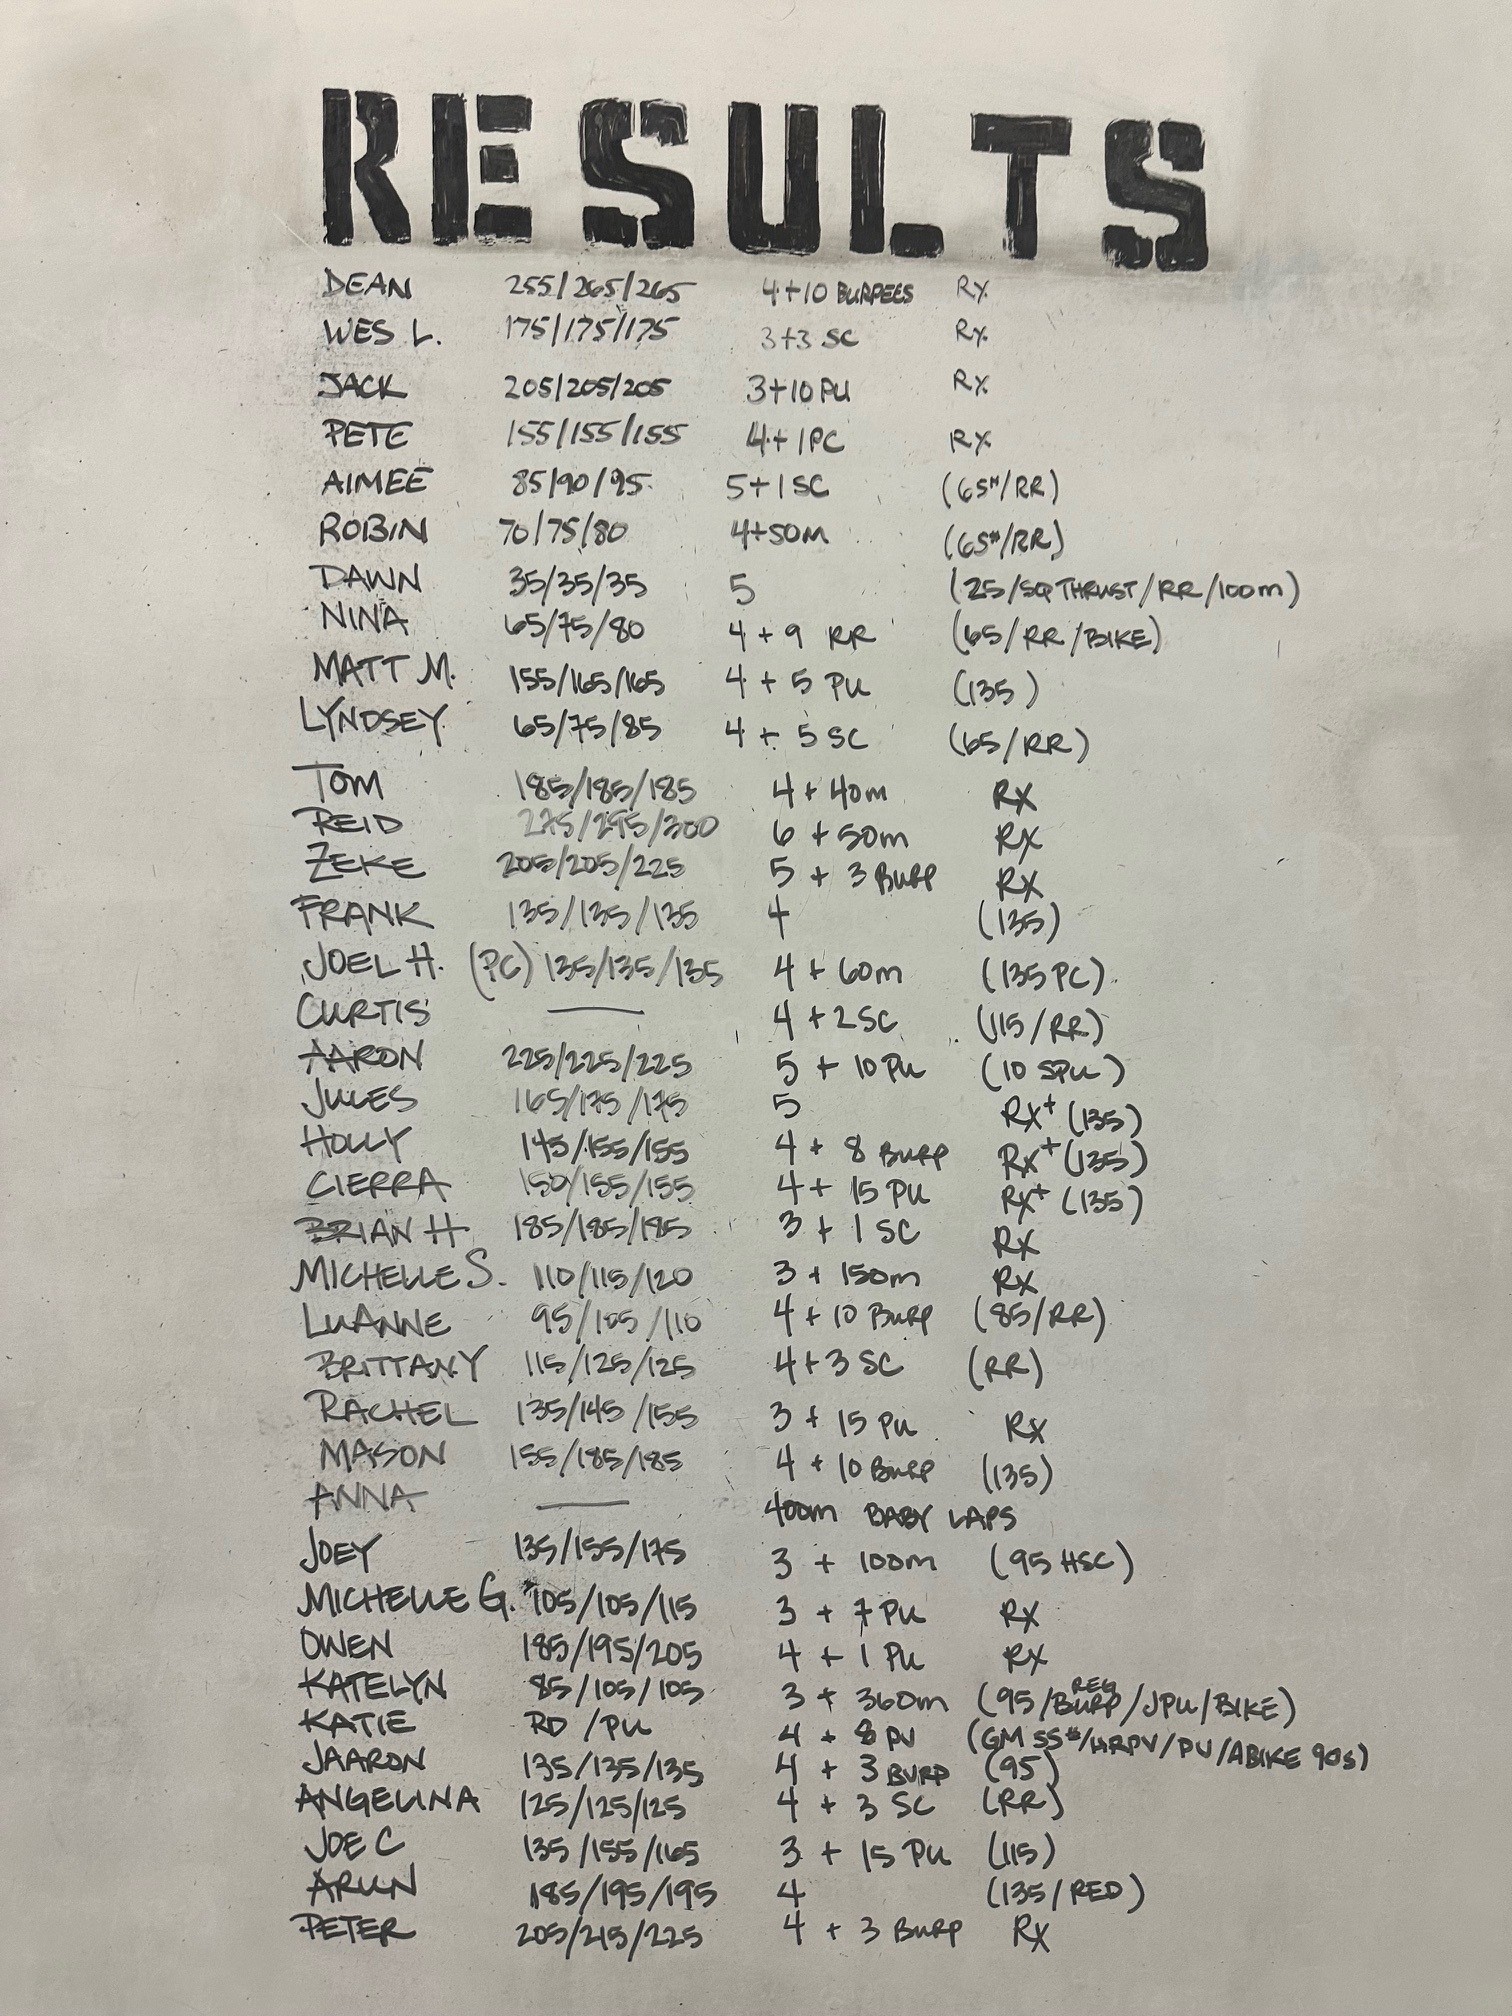 RESULTS
DEAN 255/265/265 4+10 BURPEES RX
WES L. 175/175/175 3+3 SC RX
JACK 205/205/205 3+10 PU RX
PETE 155/155/155 4+1PC RX
AIMEE 85/90/95 5+1SC (65#/RR)
ROBIN 70/75/80 4+50M (65#/RR)
DAWN 35/35/35 5 (25/SQ THRUST/RR/100m)
NINA 65/75/80 4+9 RR (65/RR/BIKE)
MATT M. 155/165/165 4+5 PU (135)
LYNDSEY 65/75/85 4+5 SC (65/RR)
TOM 185/185/185 4+40m RX
REID 275/295/300 6+50m RX
ZEKE 205/205/225 5+3 BURP RX
FRANK 135/135/135 4 (135)
JOEL H. (PC) 135/135/135 4+60m (135 PC)
CURTIS — 4+2SC (115/RR)
AARON 225/225/225 5+10 PU (10 SPU)
JULES 165/175/175 5 RX+ (135)
HOLLY 145/155/155 4+8 BURP RX+ (135)
CIERRA 150/155/155 4+15 PU RX+ (135)
BRIAN H 185/185/185 3+1 SC RX
MICHELLE S. 110/115/120 3+150m RX
LUANNE 95/105/110 4+10 BURP (85/RR)
BRITTANY 115/125/125 4+3 SC (RR)
RACHEL 135/145/155 3+15 PU RX
MASON 155/185/185 4+10 BURP (135)
ANNA — 400m BABY LAPS
JOEY 135/155/175 3+100m (95 HSC)
MICHELLE G. 105/105/115 3+7 PU RX
OWEN 185/195/205 4+1 PU RX
KATELYN 85/105/105 3+360m (95/REG BURP/JPU/BIKE)
KATIE RD/PU 4+8 PU (GM 55#/HRPU/PU/ABIKE 90s)
JAARON 135/135/135 4+3 BURP (95)
ANGELINA 125/125/125 4+3 SC (RR)
JOE C 135/155/165 3+15 PU (115)
ARUN 185/195/195 4 (135/RED)
PETER 205/215/225 4+3 BURP RX